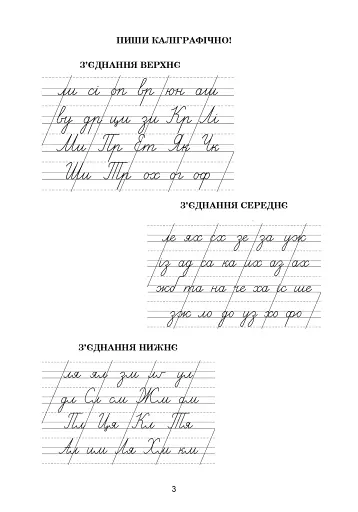 ПИШИ КАЛІГРАФІЧНО!
З'ЄДНАННЯ ВЕРХНЄ
ли сі оп вр юн аш
ву др ци зи Кр Лі
Ми Пр Ет Як Чк
Ши Тр ох ог оф
З'ЄДНАННЯ СЕРЕДНЄ
ле ях єх зе за уж
із ад са ка их аз ах
жо та на че ха їс ше
зж ло до уз хо фо
З'ЄДНАННЯ НИЖНЄ
ля ял зм іл ул
дл Сл см Жм фм
Пл Ця Кл Тя
Ал им Ля Хм км
3